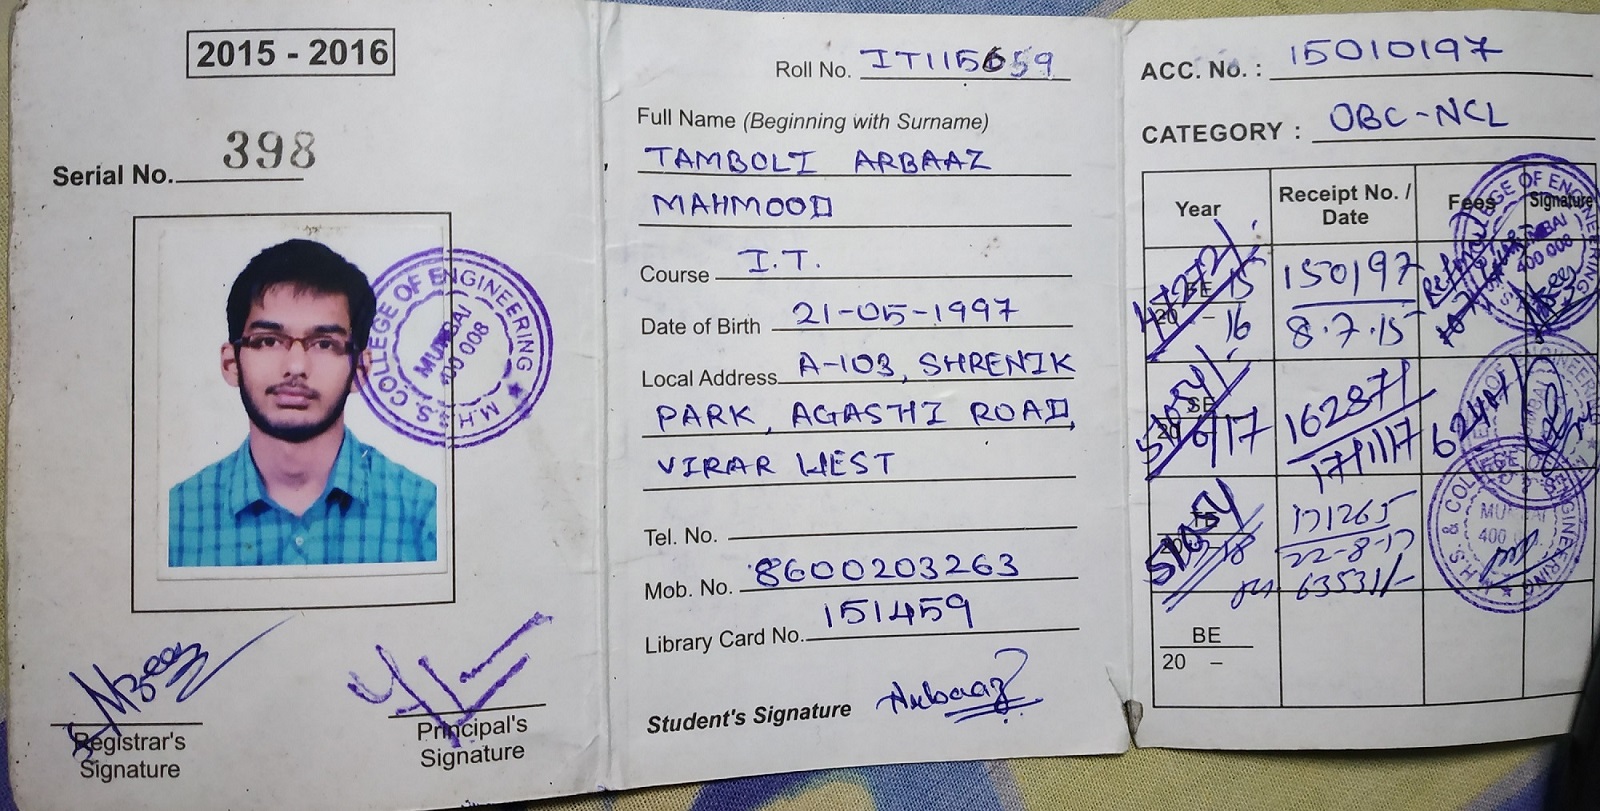 2015 - 2016
Serial No. 398
M.H.S.S. COLLEGE OF ENGINEERING
MUMBAI
400 008
Registrar's
Signature
Principal's
Signature
Roll No. IT115659
Full Name (Beginning with Surname)
TAMBOLI ARBAAZ
MAHMOOD
Course I.T.
Date of Birth 21-05-1997
Local Address A-103, SHRENIK
PARK, AGASHI ROAD,
VIRAR WEST
Tel. No.
Mob. No. 8600203263
Library Card No. 151459
Student's Signature Arbaaz
ACC. No. : 15010197
CATEGORY : OBC-NCL
Year Receipt No. / Date Fees Signature
15 150197
20 – 16 8.7.15
SE 162871
17 17/1/17
171265
18 22-8-17
63531/-
BE
20 –